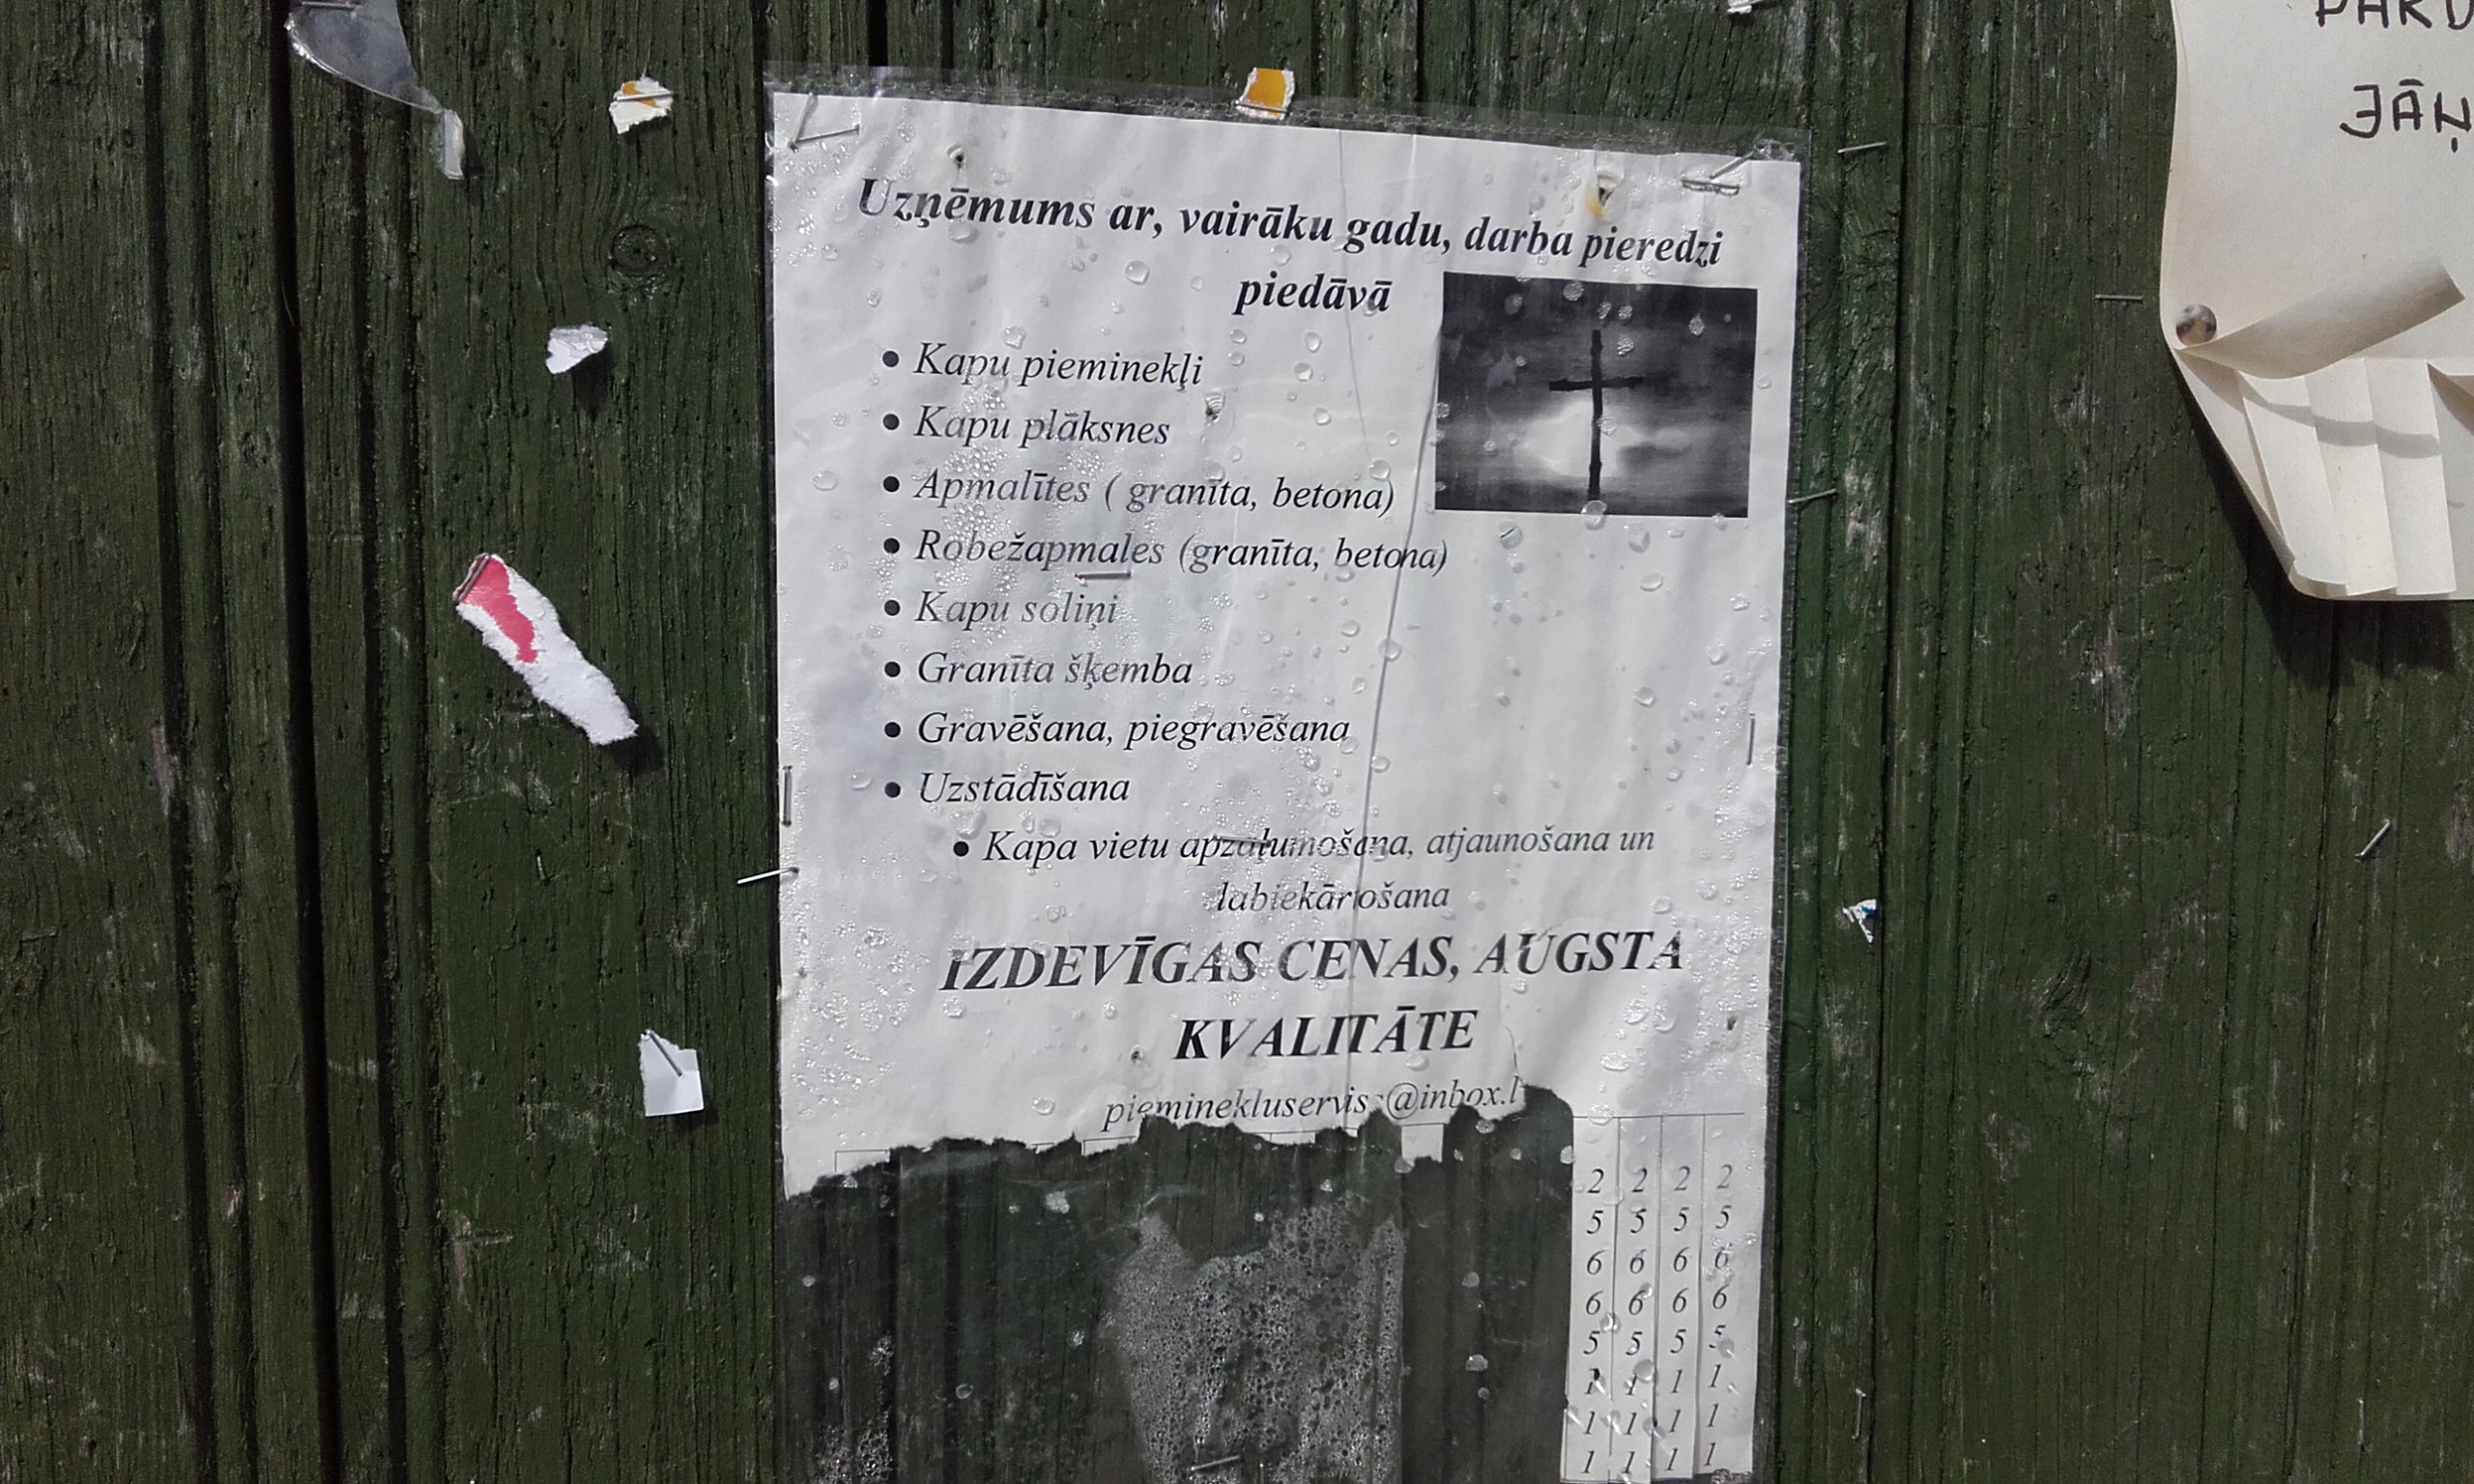 Uzņēmums ar, vairāku gadu, darba pieredzi
piedāvā
• Kapu pieminekļi
• Kapu plāksnes
• Apmalītes ( granīta, betona)
• Robežapmales (granīta, betona)
• Kapu soliņi
• Granīta šķemba
• Gravēšana, piegravēšana
• Uzstādīšana
• Kapa vietu apzaļumošana, atjaunošana un
labiekārtošana
IZDEVĪGAS CENAS, AUGSTA
KVALITĀTE
2 2 2 2
5 5 5 5
6 6 6 6
6 6 6 6
5 5 5 5
1 1 1 1
1 1 1 1
1 1 1 1